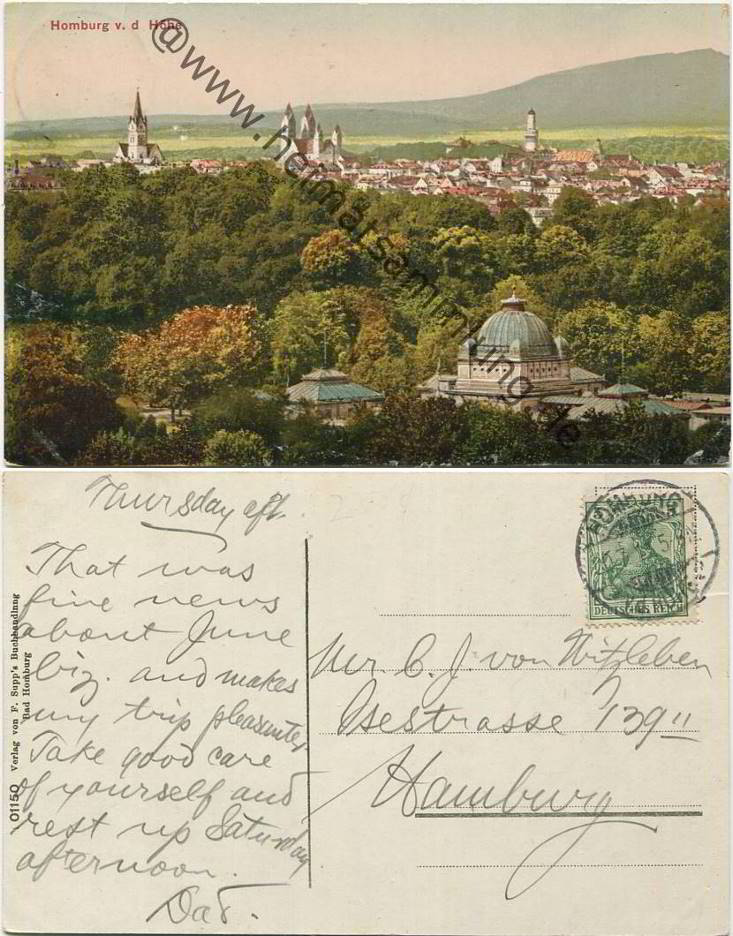 Homburg v. d. Höhe
@www.heimatsammlung.de
Thursday aft.
That was
fine news
about June
biz. and makes
my trip pleasanter
Take good care
of yourself and
rest up Saturday
afternoon.
Dad.
01150 Verlag von F. Supp's Buchhandlung
Bad Homburg
HOMBURG
DEUTSCHES REICH
Mr C. J. von Witzleben
Isestrasse 139 II
Hamburg